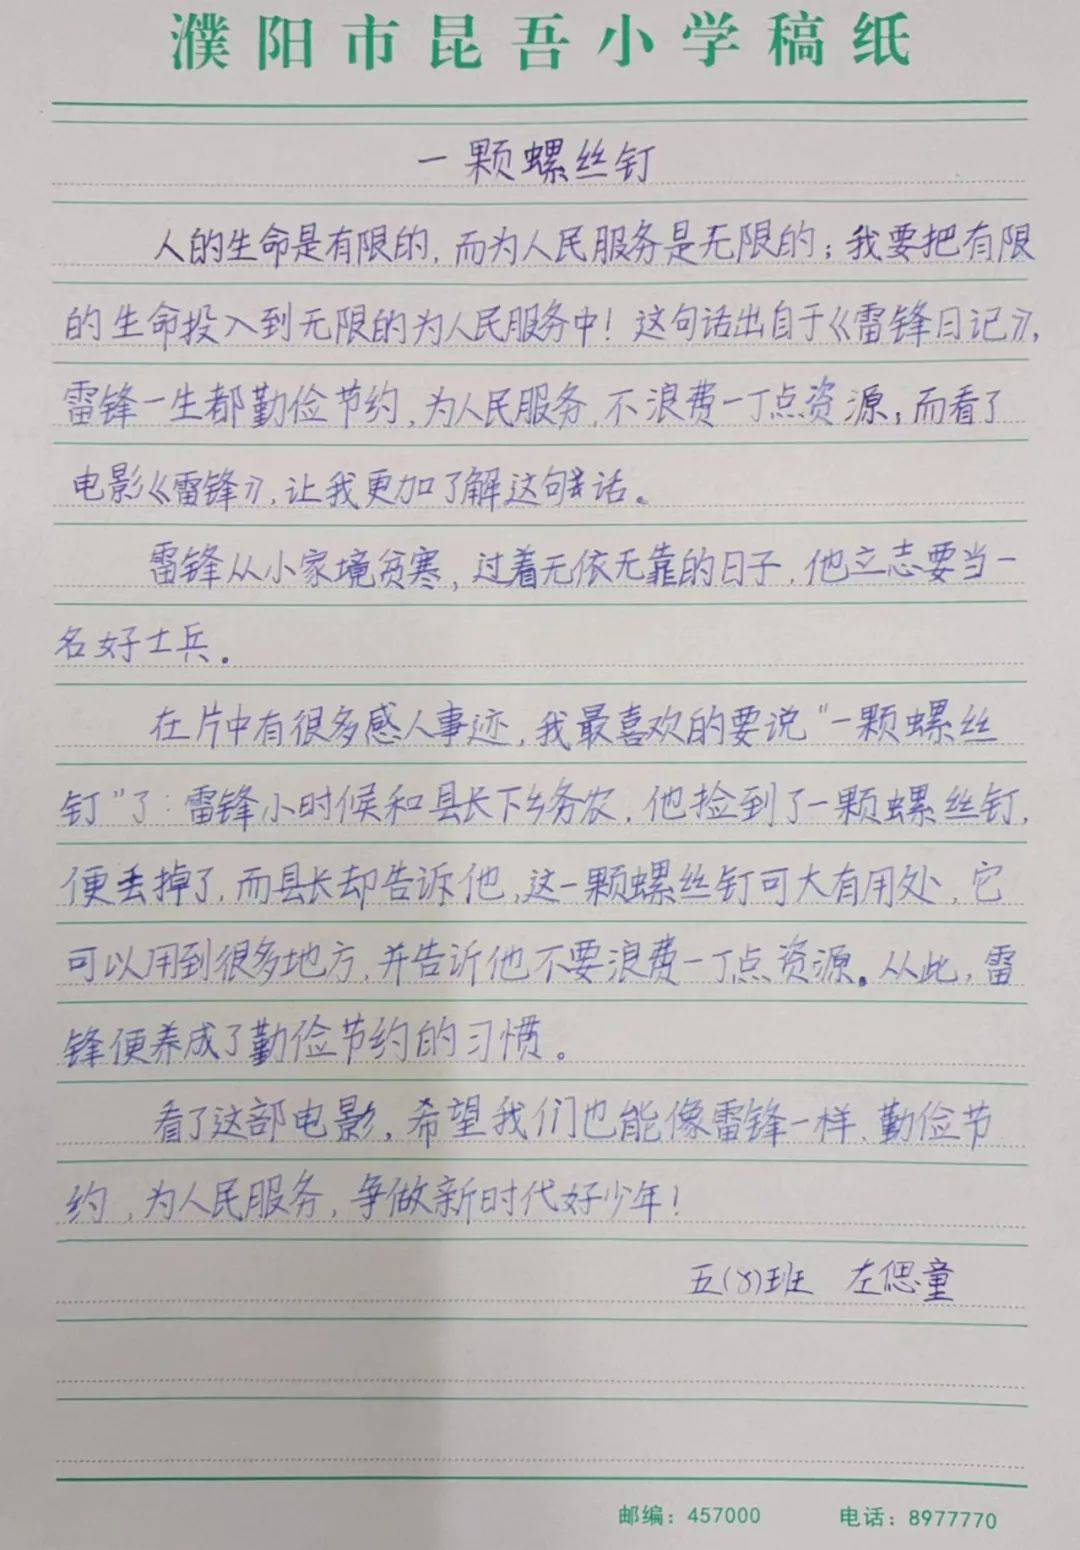 濮阳市昆吾小学稿纸
一颗螺丝钉
人的生命是有限的,而为人民服务是无限的;我要把有限
的生命投入到无限的为人民服务中!这句话出自于《雷锋日记》,
雷锋一生都勤俭节约,为人民服务,不浪费一丁点资源;而看了
电影《雷锋》,让我更加了解这句话。
雷锋从小家境贫寒,过着无依无靠的日子,他立志要当一
名好士兵。
在片中有很多感人事迹,我最喜欢的要说“一颗螺丝
钉”了:雷锋小时候和县长下乡务农,他捡到了一颗螺丝钉,
便丢掉了,而县长却告诉他,这一颗螺丝钉可大有用处,它
可以用到很多地方,并告诉他不要浪费一丁点资源。从此,雷
锋便养成了勤俭节约的习惯。
看了这部电影,希望我们也能像雷锋一样、勤俭节
约,为人民服务,争做新时代好少年!
五(8)班 左偲童
邮编:457000 电话:8977770